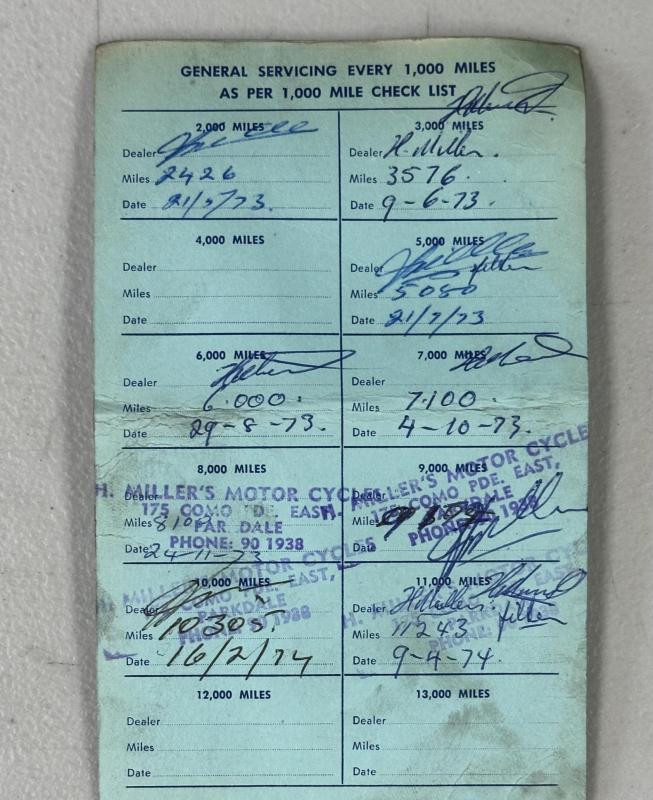 GENERAL SERVICING EVERY 1,000 MILES
AS PER 1,000 MILE CHECK LIST
2,000 MILES
Dealer
Miles 2426
Date 21/5/73.
3,000 MILES
Dealer H. Miller.
Miles 3576.
Date 9-6-73.
4,000 MILES
Dealer
Miles
Date
5,000 MILES
Dealer
filter
Miles 5050
Date 21/7/73
6,000 MILES
Dealer
Miles 6.000.
Date 29-8-73.
7,000 MILES
Dealer
Miles 7.100
Date 4-10-73.
8,000 MILES
H. MILLER'S MOTOR CYCLES
175 COMO PDE. EAST,
PARKDALE
PHONE: 90 1938
Miles
Date 24-11-73
9,000 MILES
H. MILLER'S MOTOR CYCLES
175 COMO PDE. EAST,
PARKDALE
PHONE: 90 1938
Dealer
Miles
Date
10,000 MILES
H. MILLER'S MOTOR CYCLES
COMO PDE. EAST,
PARKDALE
PHONE: 90 1938
Dealer
Miles 10305.
Date 16/2/74
11,000 MILES
Dealer H. Miller.
filter
Miles 11243
Date 9-4-74.
12,000 MILES
Dealer
Miles
Date
13,000 MILES
Dealer
Miles
Date